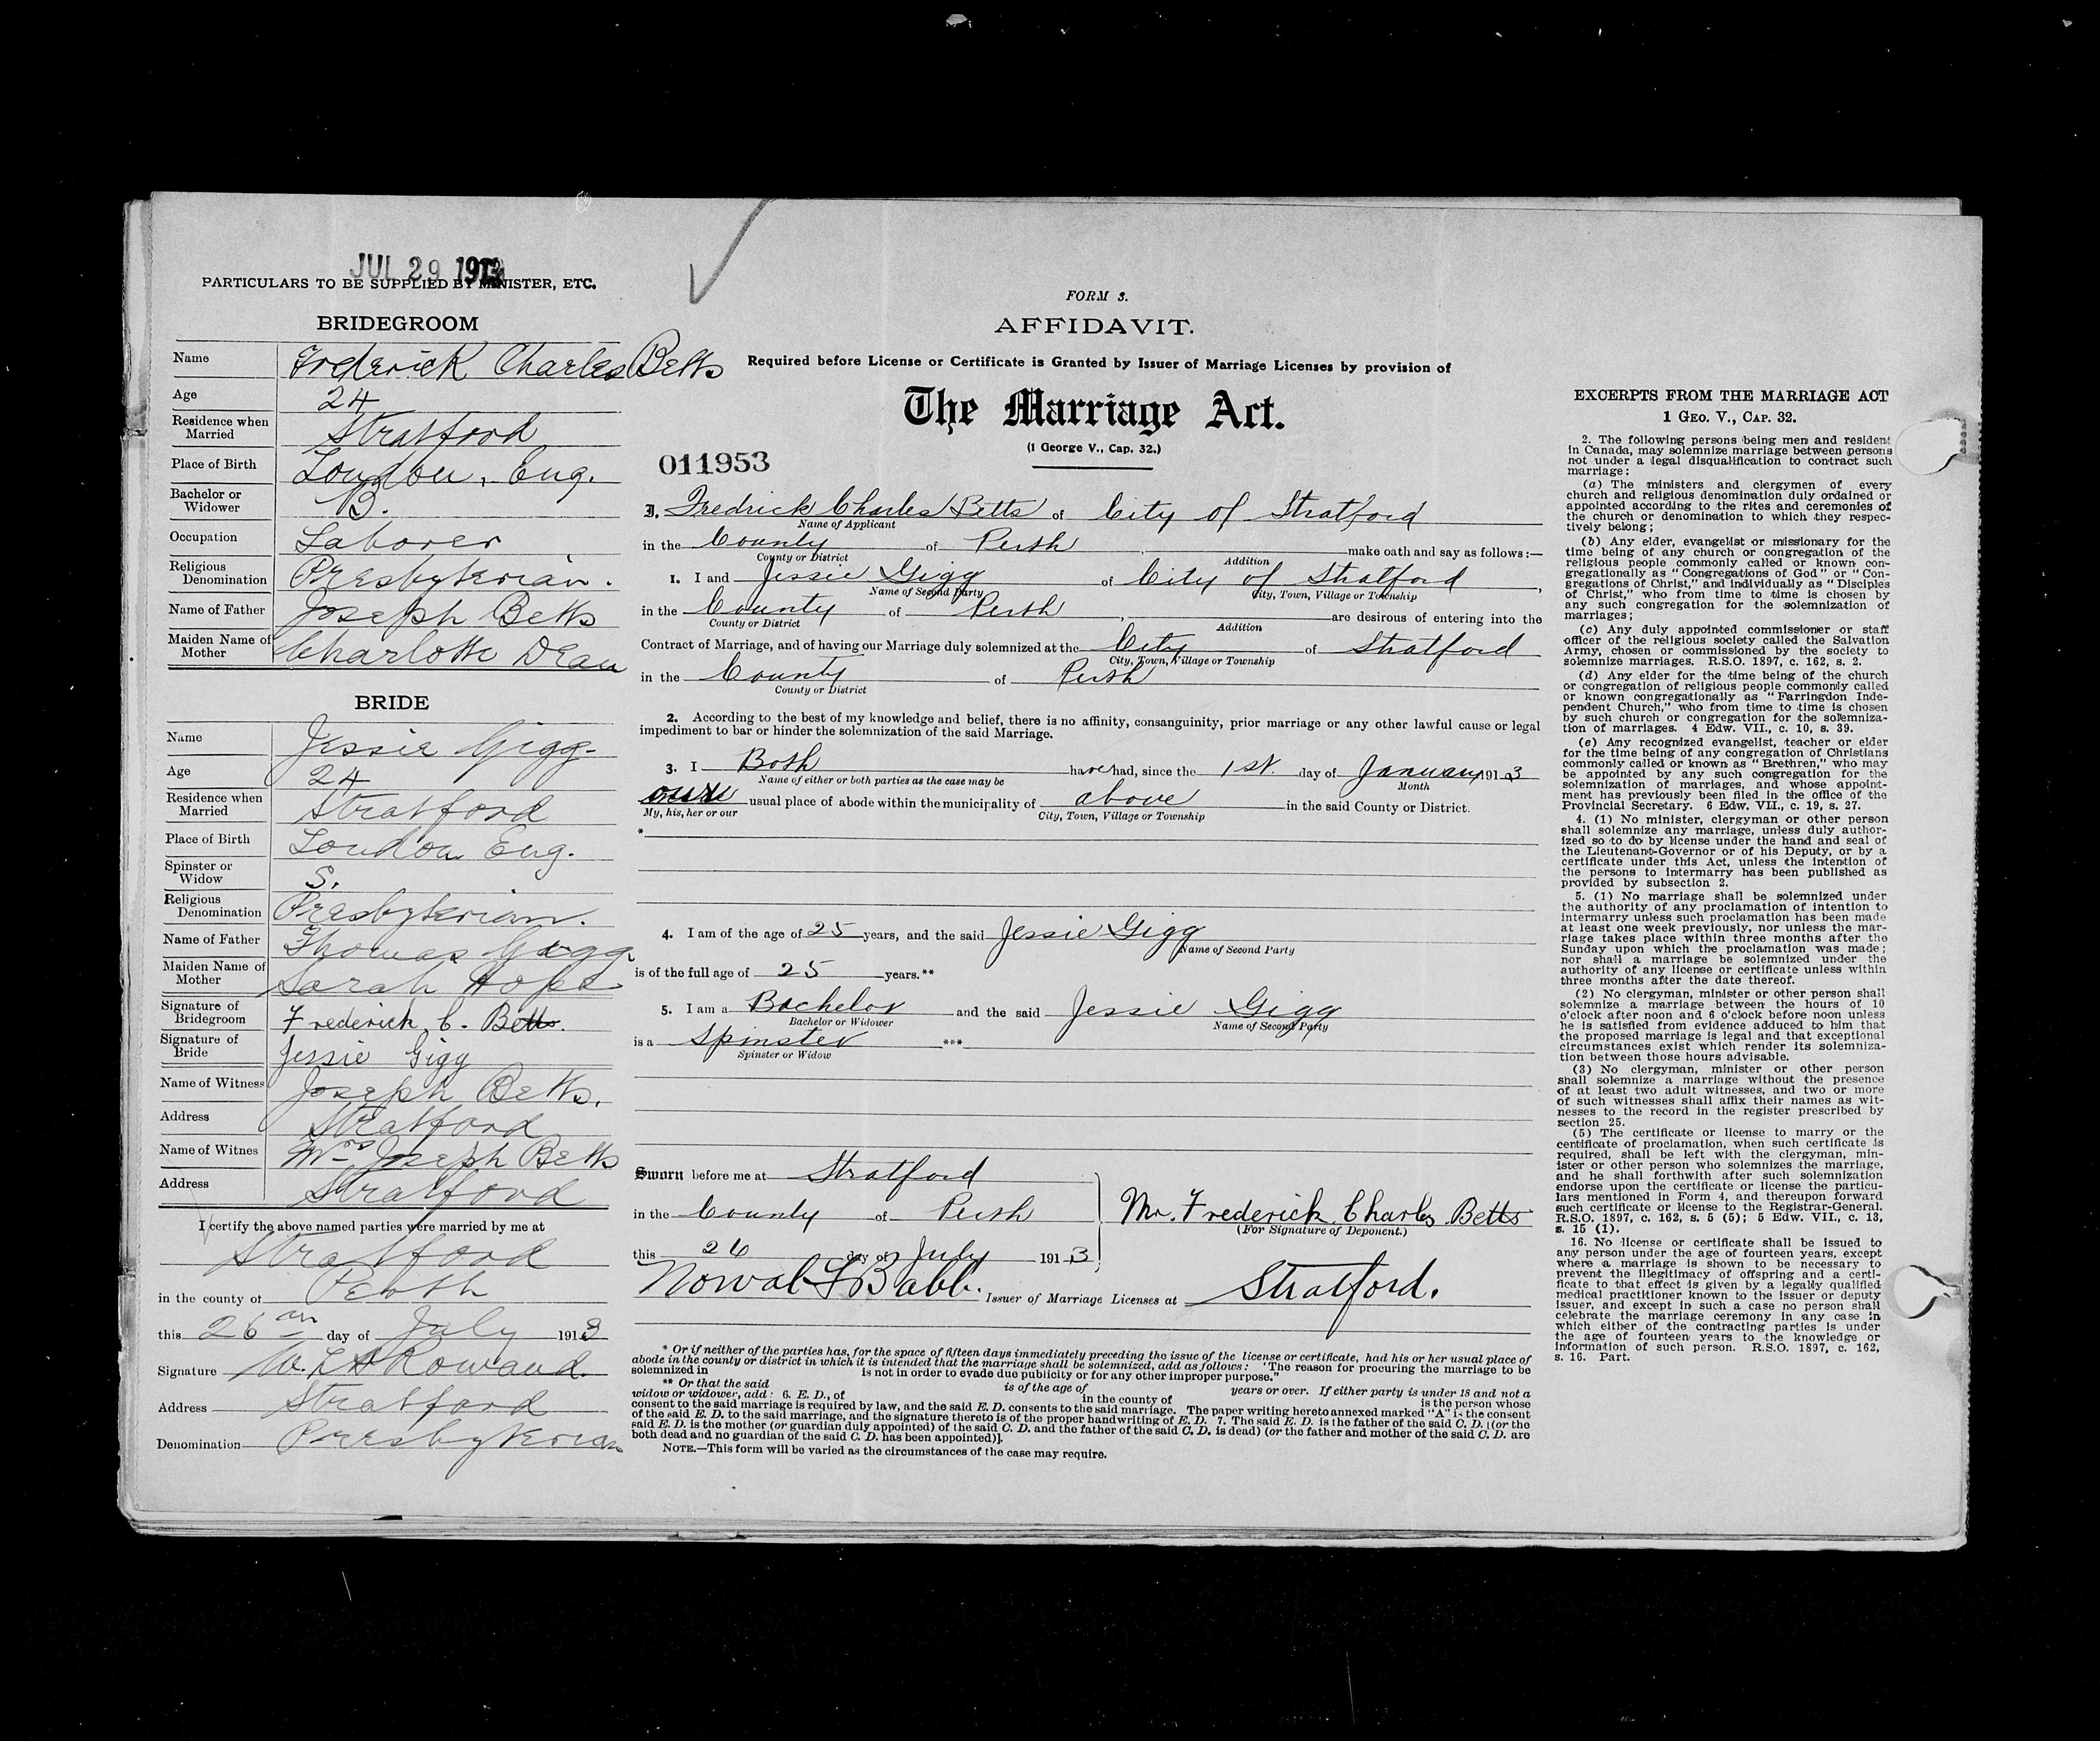 JUL 29 1913
PARTICULARS TO BE SUPPLIED BY MINISTER, ETC.
BRIDEGROOM
Name Frederick Charles Betts
Age 24
Residence when Married Stratford
Place of Birth London, Eng.
Bachelor or Widower B.
Occupation Laborer
Religious Denomination Presbyterian.
Name of Father Joseph Betts
Maiden Name of Mother Charlotte Dean
BRIDE
Name Jessie Gigg
Age 24
Residence when Married Stratford
Place of Birth London Eng.
Spinster or Widow S.
Religious Denomination Presbyterian.
Name of Father Thomas Gigg
Maiden Name of Mother Sarah Hope
Signature of Bridegroom Frederick C. Betts.
Signature of Bride Jessie Gigg
Name of Witness Joseph Betts.
Address Stratford
Name of Witnes Mrs Joseph Betts
Address Stratford
I certify the above named parties were married by me at
Stratford
in the county of Perth
this 26 day of July 1913
Signature Rowand.
Address Stratford
Denomination Presbyterian
FORM 3.
AFFIDAVIT.
Required before License or Certificate is Granted by Issuer of Marriage Licenses by provision of
The Marriage Act.
(1 George V., Cap. 32.)
011953
I, Fredrick Charles Betts of City of Stratford
Name of Applicant
in the County of Perth make oath and say as follows:—
County or District Addition
1. I and Jessie Gigg of City of Stratford,
Name of Second Party City, Town, Village or Township
in the County of Perth, are desirous of entering into the
County or District Addition
Contract of Marriage, and of having our Marriage duly solemnized at the City of Stratford
City, Town, Village or Township
in the County of Perth
County or District
2. According to the best of my knowledge and belief, there is no affinity, consanguinity, prior marriage or any other lawful cause or legal
impediment to bar or hinder the solemnization of the said Marriage.
3. I Both have had, since the 1st. day of January 1913
Name of either or both parties as the case may be Month
our usual place of abode within the municipality of above in the said County or District.
My, his, her or our City, Town, Village or Township
*
4. I am of the age of 25 years, and the said Jessie Gigg
Name of Second Party
is of the full age of 25 years.**
5. I am a Bachelor and the said Jessie Gigg
Bachelor or Widower Name of Second Party
is a Spinster ***
Spinster or Widow
Sworn before me at Stratford
in the County of Perth
Mr. Frederick Charles Betts
(For Signature of Deponent.)
this 26 day of July 1913
Babb. Issuer of Marriage Licenses at Stratford.
* Or if neither of the parties has, for the space of fifteen days immediately preceding the issue of the license or certificate, had his or her usual place of
abode in the county or district in which it is intended that the marriage shall be solemnized, add as follows: "The reason for procuring the marriage to be
solemnized in is not in order to evade due publicity or for any other improper purpose."
** Or that the said is of the age of years or over. If either party is under 18 and not a
widow or widower, add: 6. E. D., of in the county of is the person whose
consent to the said marriage is required by law, and the said E. D. consents to the said marriage. The paper writing hereto annexed marked "A" is the consent
of the said E. D. to the said marriage, and the signature thereto is of the proper handwriting of E. D. 7. The said E. D. is the father of the said C. D. (or the
said E. D. is the mother (or guardian duly appointed) of the said C. D. and the father of the said C. D. is dead) (or the father and mother of the said C. D. are
both dead and no guardian of the said C. D. has been appointed)].
NOTE.—This form will be varied as the circumstances of the case may require.
EXCERPTS FROM THE MARRIAGE ACT
1 GEO. V., CAP. 32.
2. The following persons being men and resident
in Canada, may solemnize marriage between persons
not under a legal disqualification to contract such
marriage:
(a) The ministers and clergymen of every
church and religious denomination duly ordained or
appointed according to the rites and ceremonies of
the church or denomination to which they respec-
tively belong;
(b) Any elder, evangelist or missionary for the
time being of any church or congregation of the
religious people commonly called or known con-
gregationally as "Congregations of God" or "Con-
gregations of Christ," and individually as "Disciples
of Christ," who from time to time is chosen by
any such congregation for the solemnization of
marriages;
(c) Any duly appointed commissioner or staff
officer of the religious society called the Salvation
Army, chosen or commissioned by the society to
solemnize marriages. R.S.O. 1897, c. 162, s. 2.
(d) Any elder for the time being of the church
or congregation of religious people commonly called
or known congregationally as "Farringdon Inde-
pendent Church," who from time to time is chosen
by such church or congregation for the solemniza-
tion of marriages. 4 Edw. VII., c. 10, s. 39.
(e) Any recognized evangelist, teacher or elder
for the time being of any congregation of Christians
commonly called or known as "Brethren," who may
be appointed by any such congregation for the
solemnization of marriages, and whose appoint-
ment has previously been filed in the office of the
Provincial Secretary. 6 Edw. VII., c. 19, s. 27.
4. (1) No minister, clergyman or other person
shall solemnize any marriage, unless duly author-
ized so to do by license under the hand and seal of
the Lieutenant-Governor or of his Deputy, or by a
certificate under this Act, unless the intention of
the persons to intermarry has been published as
provided by subsection 2.
5. (1) No marriage shall be solemnized under
the authority of any proclamation of intention to
intermarry unless such proclamation has been made
at least one week previously, nor unless the mar-
riage takes place within three months after the
Sunday upon which the proclamation was made;
nor shall a marriage be solemnized under the
authority of any license or certificate unless within
three months after the date thereof.
(2) No clergyman, minister or other person shall
solemnize a marriage between the hours of 10
o'clock after noon and 6 o'clock before noon unless
he is satisfied from evidence adduced to him that
the proposed marriage is legal and that exceptional
circumstances exist which render its solemniza-
tion between those hours advisable.
(3) No clergyman, minister or other person
shall solemnize a marriage without the presence
of at least two adult witnesses, and two or more
of such witnesses shall affix their names as wit-
nesses to the record in the register prescribed by
section 25.
(5) The certificate or license to marry or the
certificate of proclamation, when such certificate is
required, shall be left with the clergyman, min-
ister or other person who solemnizes the marriage,
and he shall forthwith after such solemnization
endorse upon the certificate or license the particu-
lars mentioned in Form 4, and thereupon forward
such certificate or license to the Registrar-General.
R.S.O. 1897, c. 162, s. 5 (5); 5 Edw. VII., c. 13,
s. 15 (1).
16. No license or certificate shall be issued to
any person under the age of fourteen years, except
where a marriage is shown to be necessary to
prevent the illegitimacy of offspring and a certi-
ficate to that effect is given by a legally qualified
medical practitioner known to the issuer or deputy
issuer, and except in such a case no person shall
celebrate the marriage ceremony in any case in
which either of the contracting parties is under
the age of fourteen years to the knowledge or
information of such person. R.S.O. 1897, c. 162,
s. 16. Part.